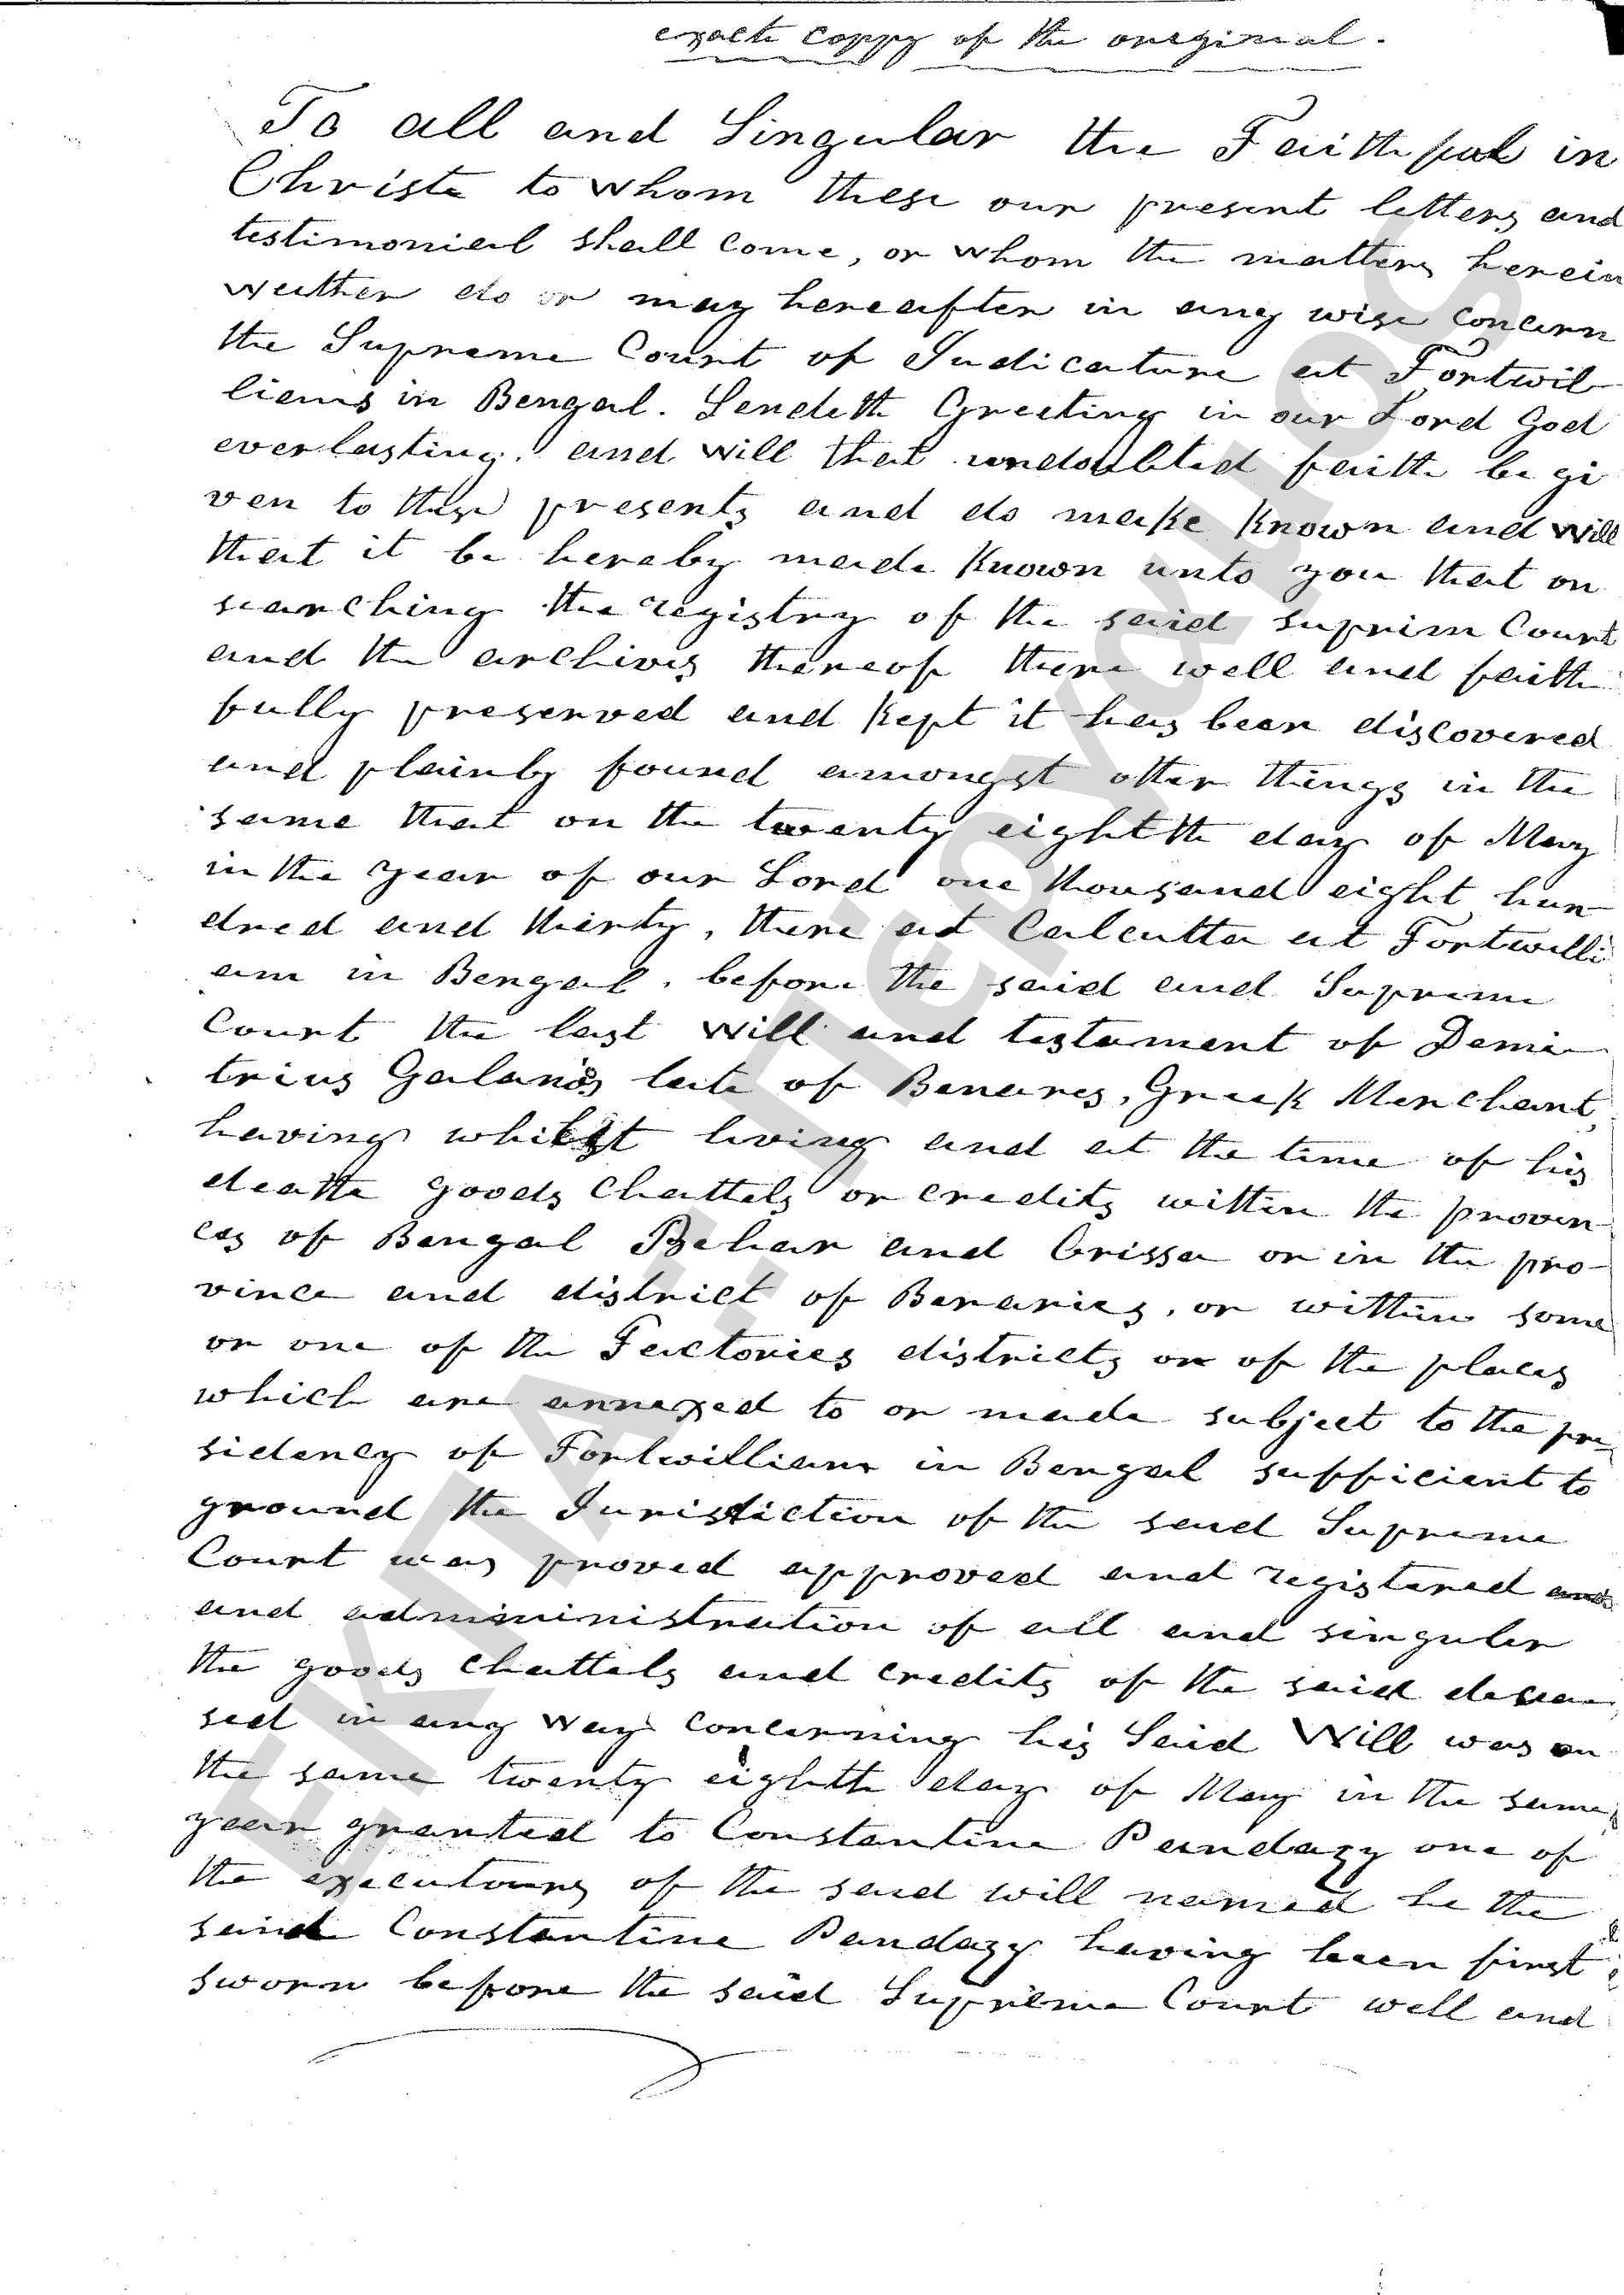 exacte coppy of the oreginal.
To all and Singular the Faithful in
Christe to whom these our present letters and
testimonial shall come, or whom the matters herein
weither do or may hereafter in any wise concern
the Supreme Court of Judicature at Fortwil
liams in Bengal. Sendeth Greeting in our Lord God
everlasting. and will that undoubted faith be gi
ven to these presents and do make known and will
that it be hereby made known unto you that on
searching the registry of the said suprim Court
and the archives thereof there well and faith
fully preserved and kept it has been discovered
and plainly found amongst other things in the
same that on the twenty eightth day of May
in the year of our Lord one thousand eight hun
dred and thirty, there at Calcutta at Fortwilli
am in Bengal, before the said and Supreme
Court the last will and testament of Deme
trius Galanos late of Benares, Greek Merchant,
having whilst living and at the time of his
death goods chattels or credits within the provin
ces of Bengal Behar and Orissa or in the pro-
vince and district of Benaries, or within some
or one of the Factories districts or of the places
which are annexed to or made subject to the pre
sidency of Fortwilliam in Bengal sufficient to
ground the Jurisdiction of the said Supreme
Court was proved approved and registered
and administration of all and singuler
the goods chattels and credits of the said decea
sed in any way concerning his Said Will was on
the same twenty eighth day of May in the same
year granted to Constantine Pandazy one of
the executours of the said will named he the
said Constantine Pandazy having been first
sworn before the said Supreme Court well and